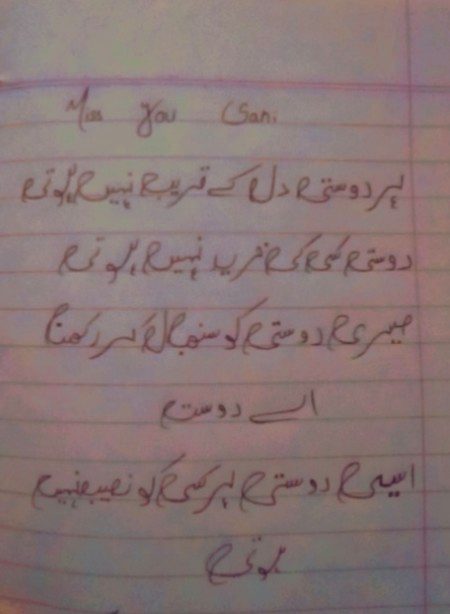 Miss You Sani
ہر دوستی دل کے قریب نہیں ہوتی
دوستی کسی کی خرید نہیں ہوتی
میری دوستی کو سنبھال کر رکھنا
اے دوست
ایسی دوستی ہر کسی کو نصیب نہیں
ہوتی